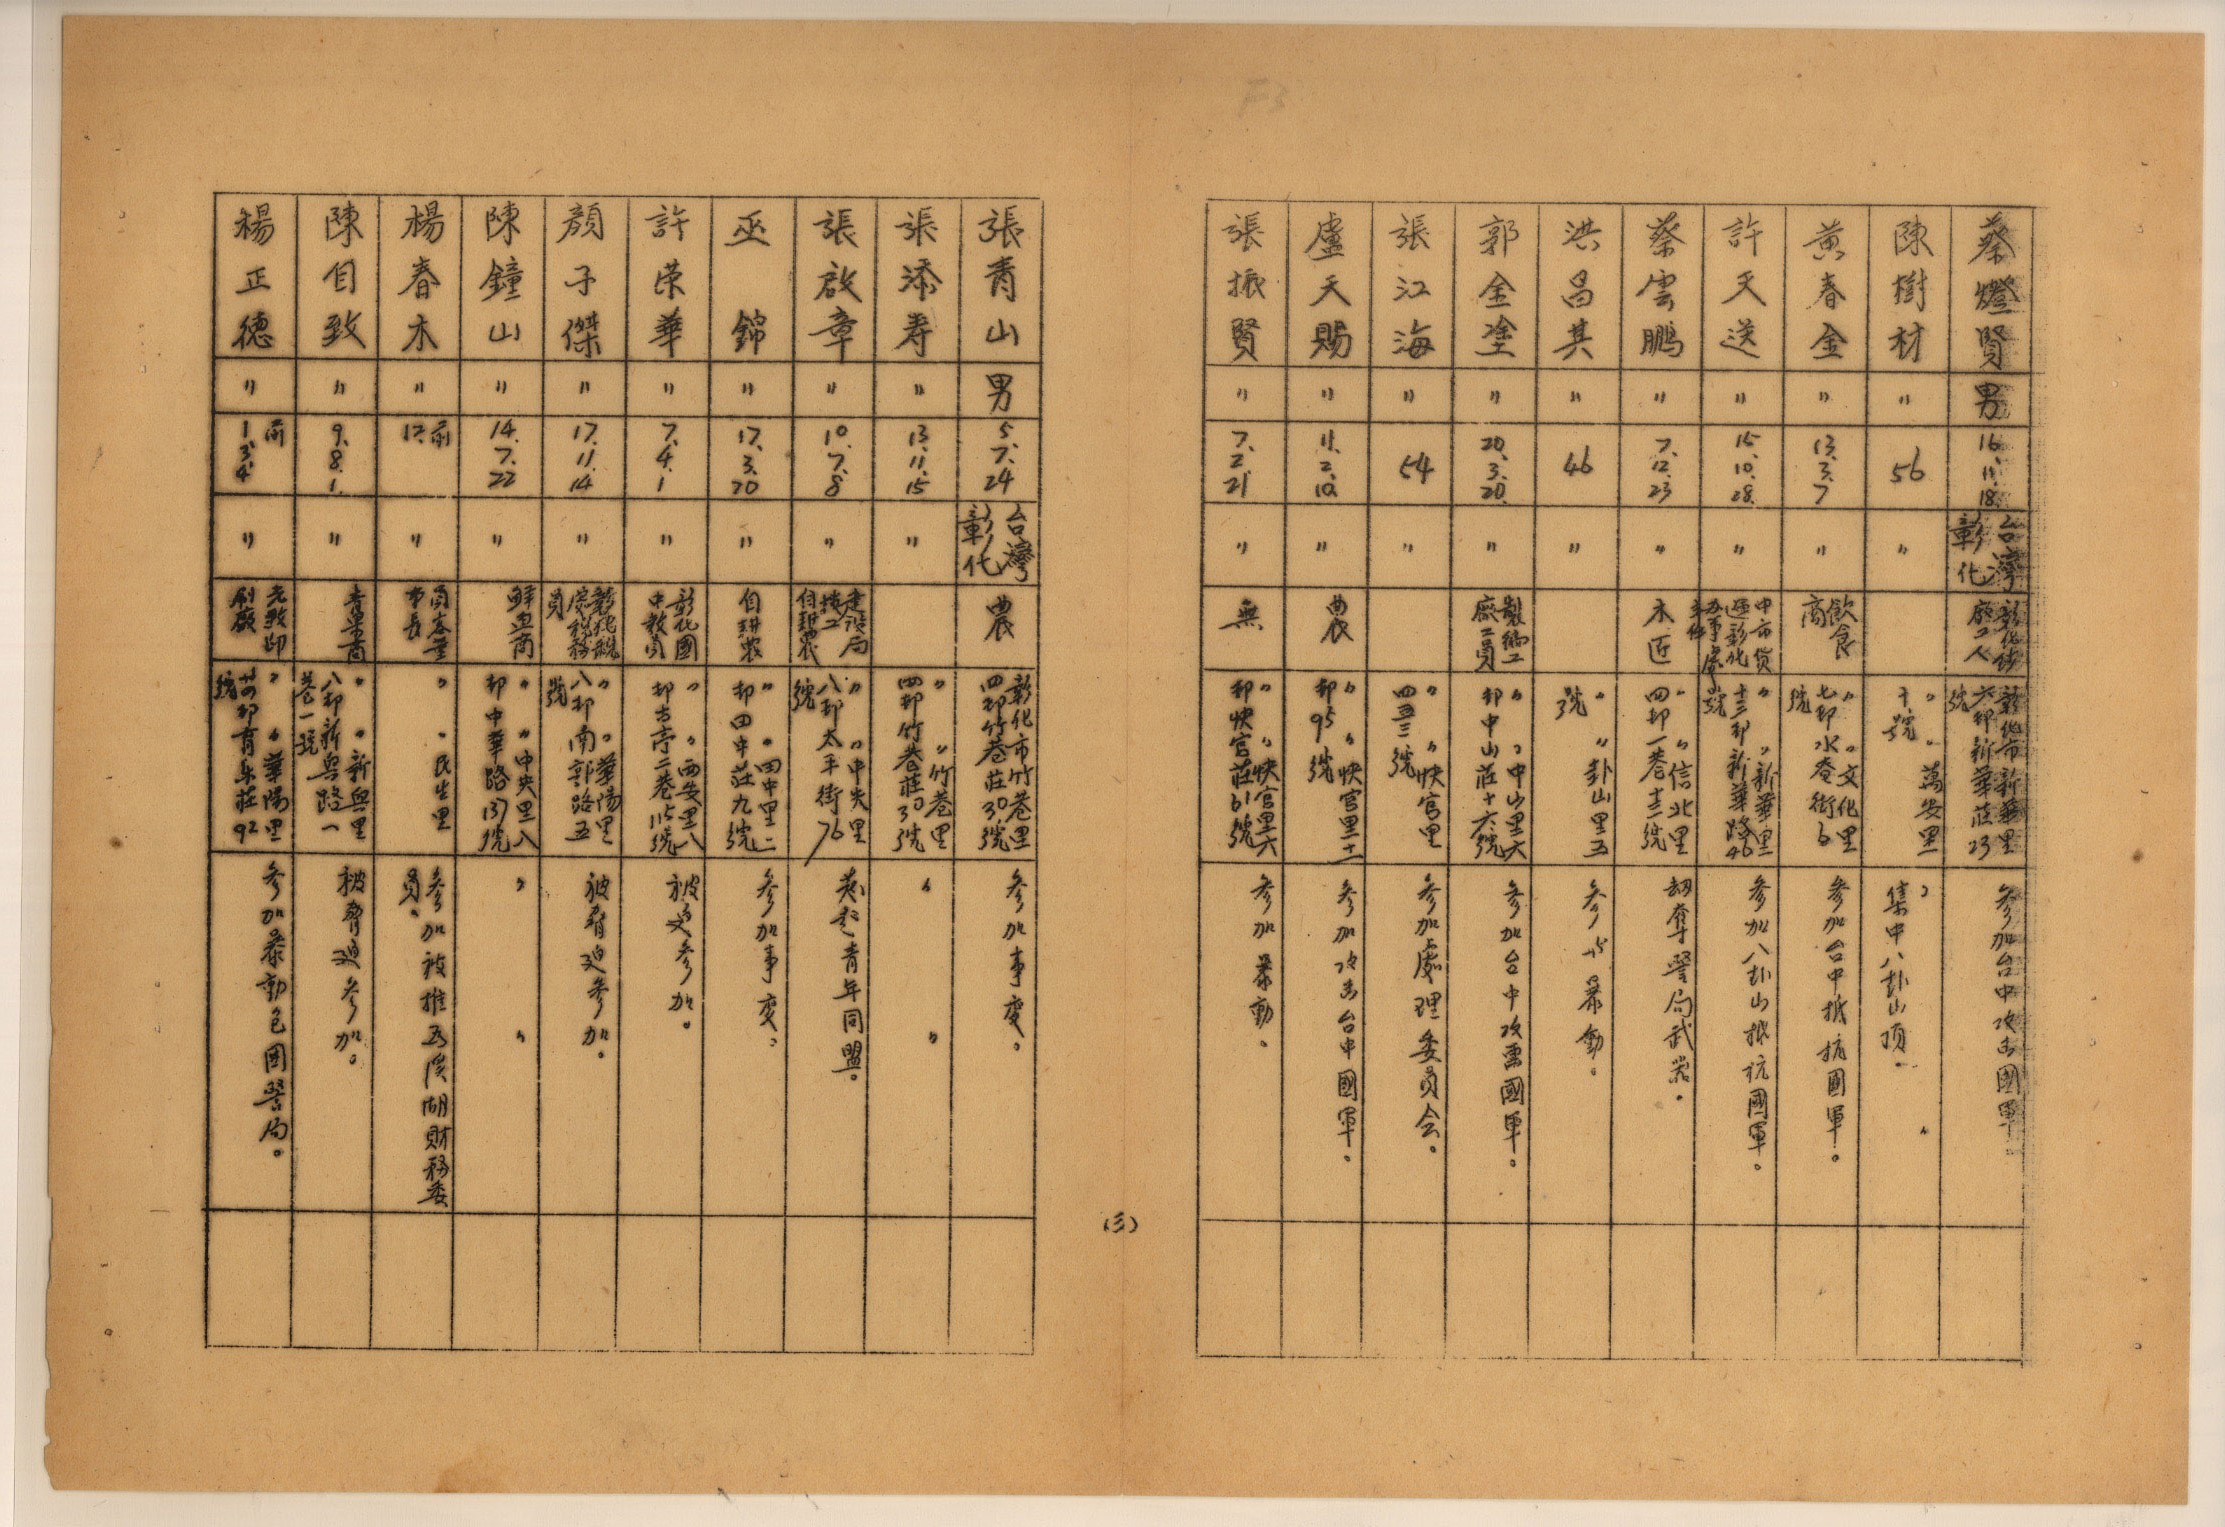 F3
蔡燈賢 男 16.11.18. 台灣彰化 廠工人 彰化市新華里六鄰新華莊23號 參加台中攻击國軍
陳樹材 〃 56 〃 〃〃萬安里十號 〃集中八卦山頂。〃
黄春金 〃 13.3.7 〃 飲食商 〃〃文化里七鄰水巷街6號 參加台中抵抗國軍。
許天送 〃 15.10.28. 〃 〃〃新華里十三鄰新華路46號 參加八卦山抵抗國軍。
蔡雲鵬 〃 7.12.23 〃 木匠 〃〃信北里四鄰一巷十三號 刼奪警局武器。
洪昌其 〃 46 〃 〃〃卦山里五號 參加暴動。
郭金塗 〃 20.3.20. 〃 製繩工廠工員 〃〃中山里六鄰中山莊十六號 參加台中攻擊國軍。
張江海 〃 54 〃 〃〃快官里四五三號 參加處理委員会。
盧天賜 〃 11.2.10. 〃 農 〃〃快官里十二鄰95號 參加攻击台中國軍。
張振賢 〃 7.2.21 〃 無 〃〃快官里六鄰快官莊61號 參加暴動。
(三)
張青山 男 5.7.24 台灣彰化 農 彰化市竹巷里四鄰竹巷莊30號 參加事变。
張添寿 〃 13.11.15 〃 〃〃竹巷里四鄰竹巷莊03號 〃〃
張啟章 〃 10.7.8 〃 建設局技工自耕農 〃〃中央里八鄰太平街76號 发起青年同盟。
巫錦 〃 17.3.20 〃 自耕农 〃〃田中里二鄰田中莊九號 參加事变。
許荣華 〃 7.4.1 〃 彰化國中教員 〃〃西安里八鄰古亭二巷115號 被迫參加。
顏子傑 〃 17.11.14 〃 彰化稅務員 〃〃華陽里八鄰南郭路五號 被脅迫參加。
陳鐘山 〃 14.7.22 〃 鮮魚商 〃〃中央里八鄰中華路137號 〃〃
楊春木 〃 前12. 〃 〃〃民生里 參加被推為溪湖財務委員。
陳自致 〃 9.8.1. 〃 青果商 〃〃新興里八鄰新興路一巷一號 被脅迫參加。
楊正德 〃 前1.3.4. 〃 刷廠 〃〃華陽里92號 參加暴動包圍警局。